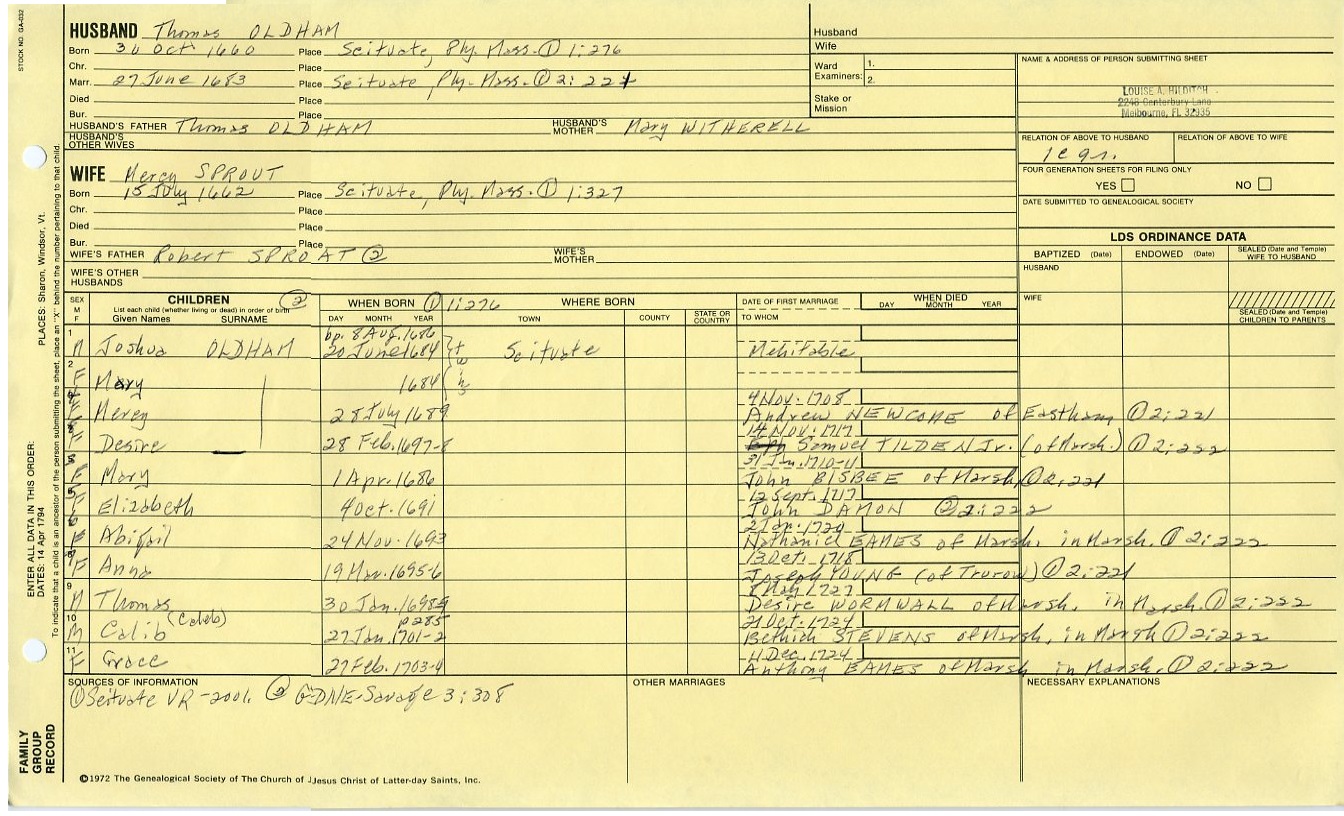 STOCK NO. GA-032
HUSBAND Thomas OLDHAM
Born 30 Oct 1660 Place Scituate, Ply. Mass. ① 1:276
Chr. Place
Marr. 27 June 1683 Place Scituate, Ply. Mass. ① 2:221
Died Place
Bur. Place
HUSBAND'S FATHER Thomas OLDHAM HUSBAND'S MOTHER Mary WITHERELL
HUSBAND'S OTHER WIVES
WIFE Mercy SPROUT
Born 15 July 1662 Place Scituate, Ply. Mass. ① 1:327
Chr. Place
Died Place
Bur. Place
WIFE'S FATHER Robert SPROAT ② WIFE'S MOTHER
WIFE'S OTHER HUSBANDS
Husband
Wife
Ward Examiners: 1. 2.
Stake or Mission
NAME & ADDRESS OF PERSON SUBMITTING SHEET
LOUISE A. HILDITCH
2248 Canterbury Lane
Melbourne, FL 32935
RELATION OF ABOVE TO HUSBAND RELATION OF ABOVE TO WIFE
FOUR GENERATION SHEETS FOR FILING ONLY
YES NO
DATE SUBMITTED TO GENEALOGICAL SOCIETY
LDS ORDINANCE DATA
BAPTIZED (Date) ENDOWED (Date) SEALED (Date and Temple) WIFE TO HUSBAND
HUSBAND
WIFE
SEALED (Date and Temple) CHILDREN TO PARENTS
SEX M F
CHILDREN ②
List each child (whether living or dead) in order of birth
Given Names SURNAME
WHEN BORN ① 1:276
DAY MONTH YEAR
WHERE BORN
TOWN COUNTY STATE OR COUNTRY
DATE OF FIRST MARRIAGE
TO WHOM
WHEN DIED
DAY MONTH YEAR
bp. 8 Aug. 1686
1 M Joshua OLDHAM 20 June 1684 twins Scituate Mehitable
2 F Mary 1684
4 Nov. 1708
F Mercy 28 July 1689 Andrew NEWCOME of Eastham ① 2:221
14 Nov. 1717
F Desire 28 Feb. 1697-8 Samuel TILDEN Jr. (of Marsh.) ① 2:222
31 Jan. 1710-11
F Mary 1 Apr. 1686 John BISBEE of Marsh ① 2:221
12 Sept. 1717
F Elizabeth 4 Oct. 1691 John DAMON ② 2:222
2 Jan. 1720
F Abigail 24 Nov. 1693 Nathaniel EAMES of Marsh, in Marsh. ① 2:222
13 Oct. 1718
F Anna 19 Mar. 1695-6 Joseph YOUNG (of Truro) ① 2:221
May 1727
9 M Thomas 30 Jan. Desire WORMWALL of Marsh, in Marsh. ① 2:222
p 285
21 Oct. 1724
10 M Calib (Caleb) 27 Jan. 1701-2 Bethiah STEVENS of Marsh, in Marsh ① 2:222
11 Dec. 1724
11 F Grace 27 Feb. 1703-4 Anthony EAMES of Marsh in Marsh. ① 2:222
SOURCES OF INFORMATION
① Scituate VR - ② GDNE-Savage 3:308
OTHER MARRIAGES
NECESSARY EXPLANATIONS
©1972 The Genealogical Society of The Church of Jesus Christ of Latter-day Saints, Inc.
FAMILY GROUP RECORD
ENTER ALL DATA IN THIS ORDER:
DATES: 14 Apr 1794 PLACES: Sharon, Windsor, Vt.
To indicate that a child is an ancestor of the person submitting the sheet, place an "X" behind the number pertaining to that child.